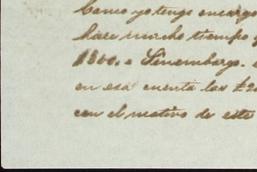 Como yo tengo encargo
hace mucho tiempo
1800. a Sinembargo.
en esa cuenta las
con el motivo de este